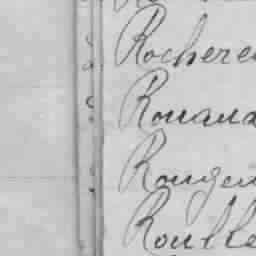 Rochere
Rouaud
Rouge
Roulle